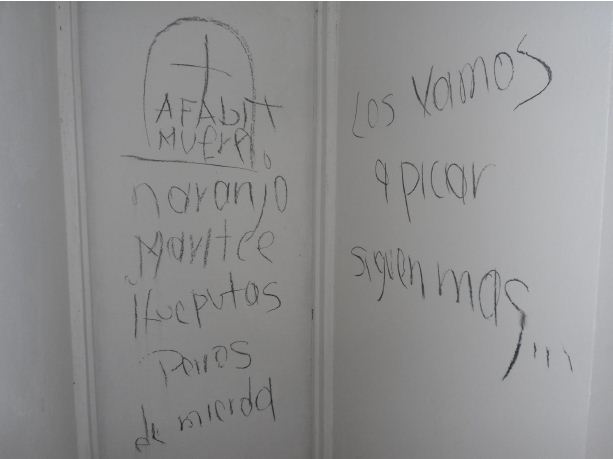 AFAbit
MUERA
naranjo
Maritce
Hueputas
Perros
de mierda
Los Vamos
a picar
siguen mas...